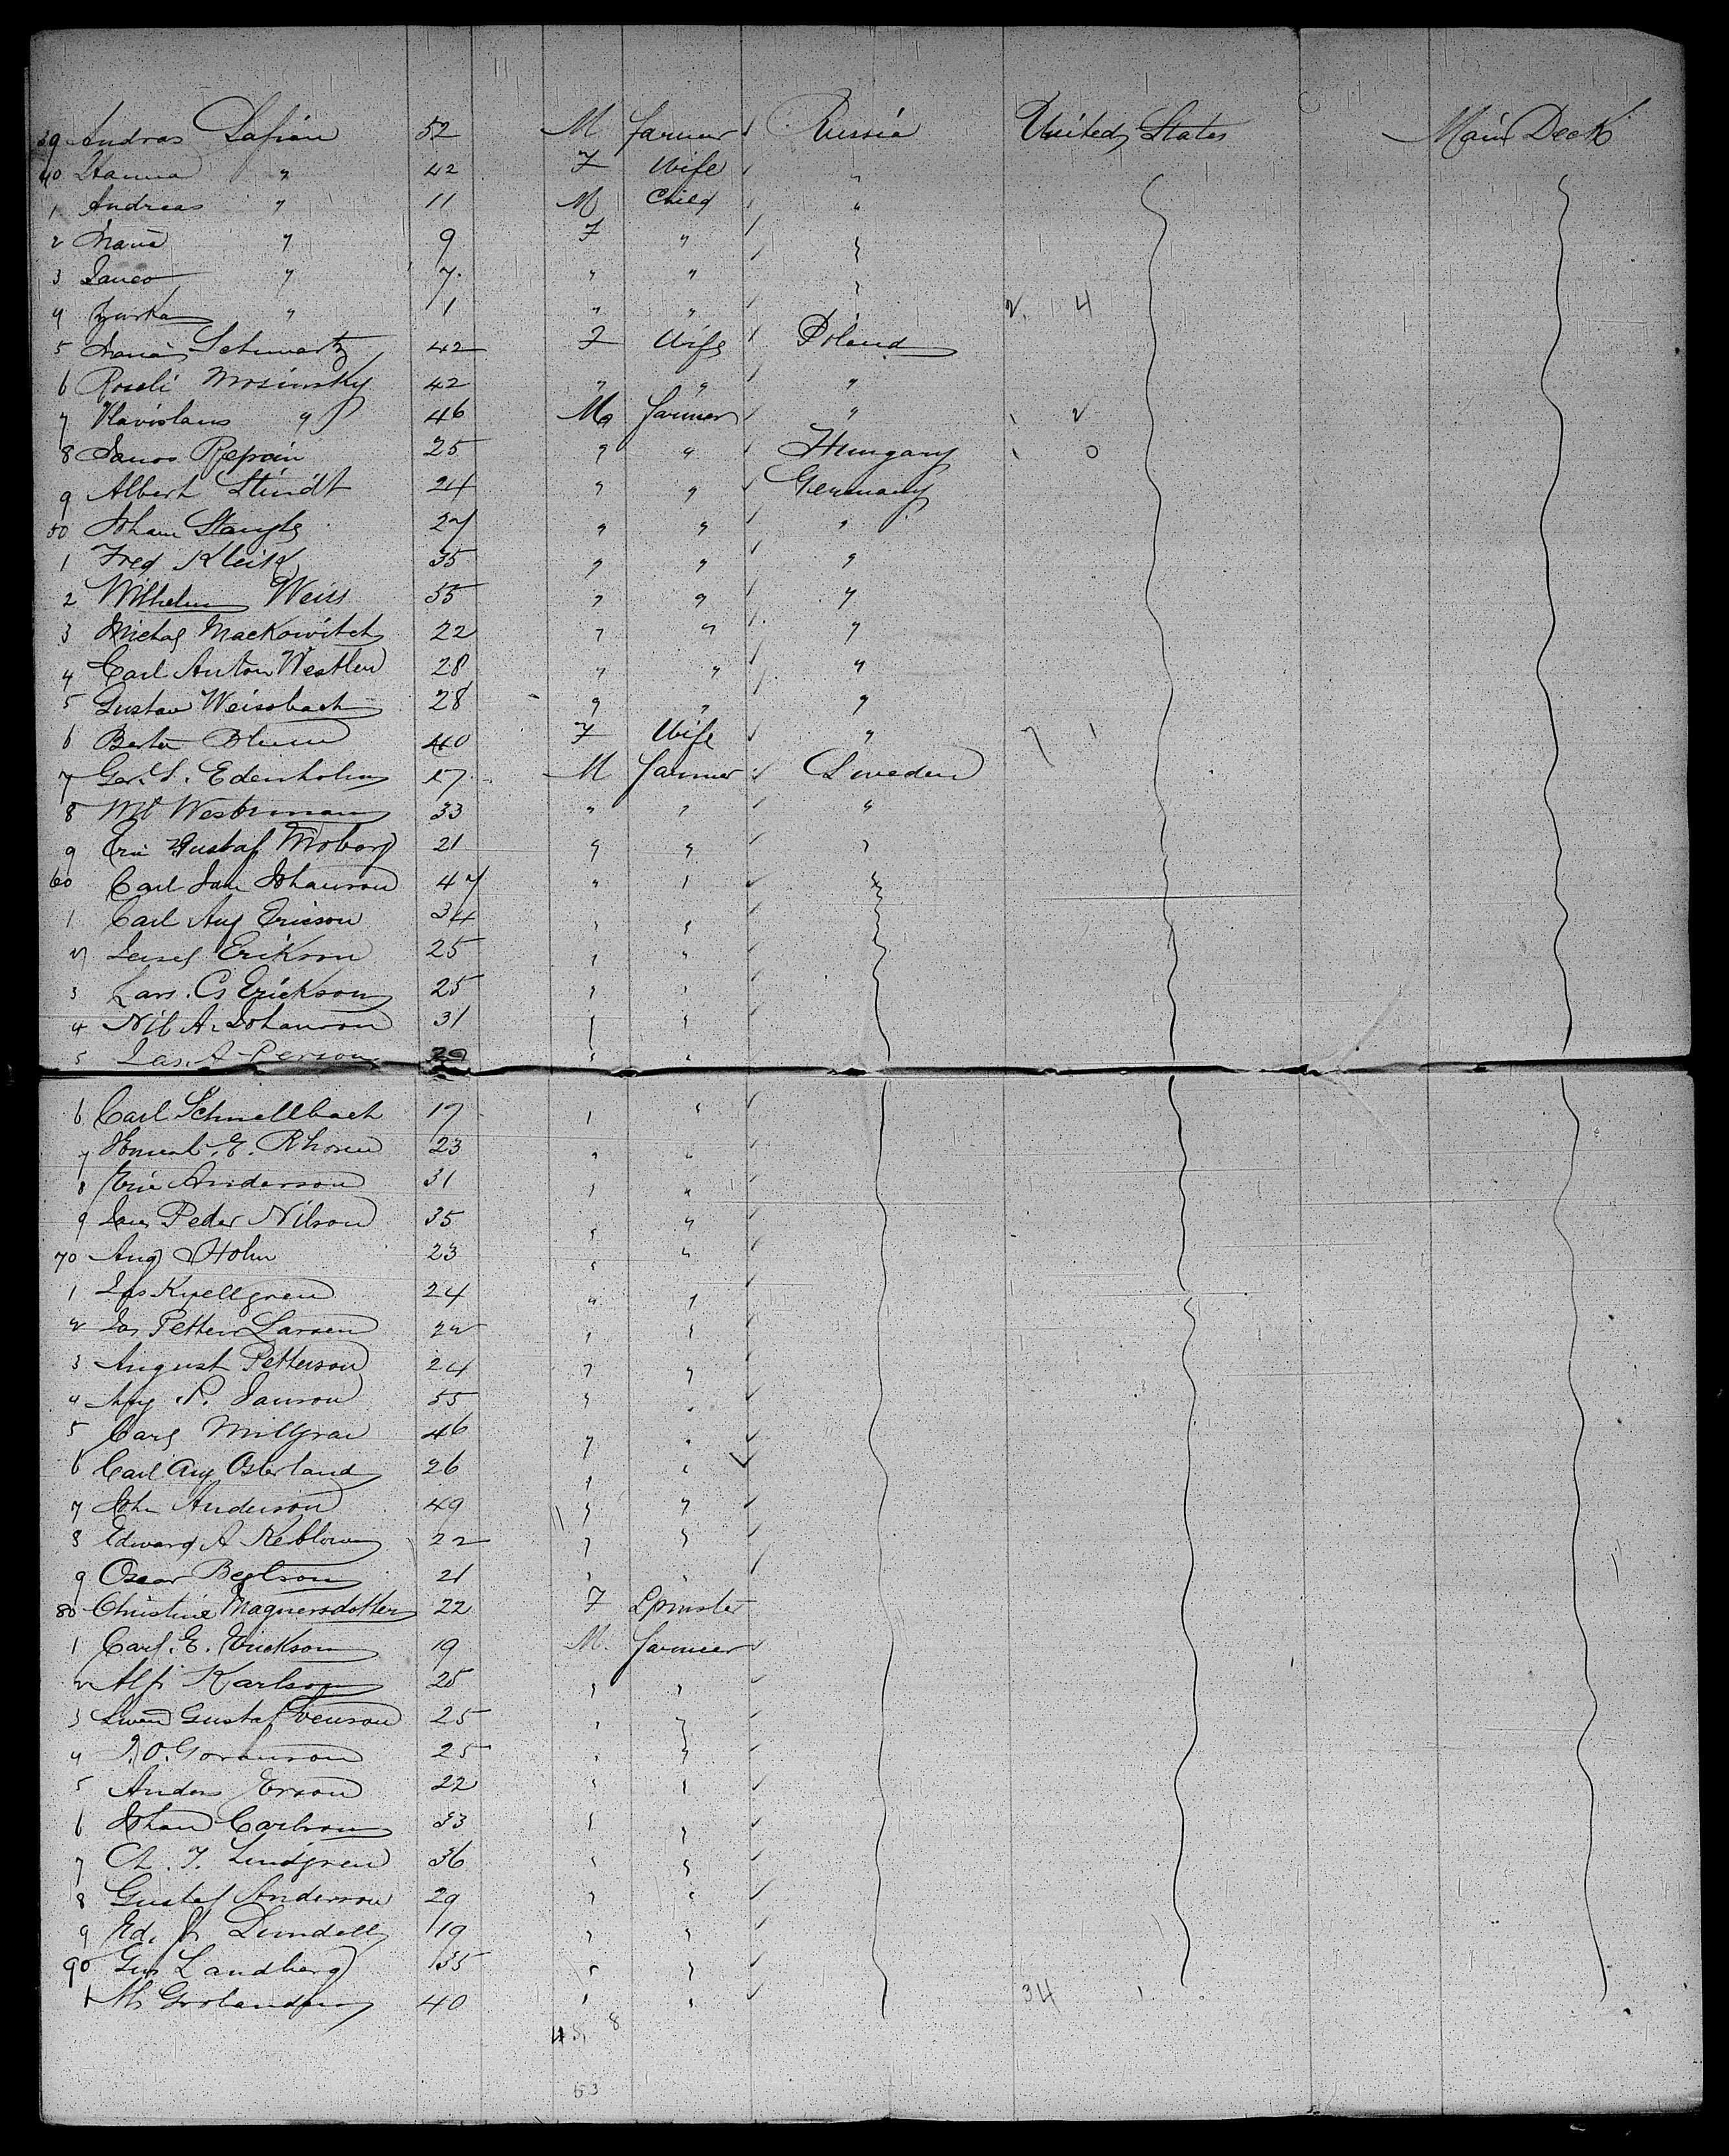 39 Andras Lafian 52 M farmer Russia United States Main Deck
40 Hanna " 42 F Wife "
1 Andreas " 11 M Child "
2 Maria " 9 F "
3 " 7 " "
4 " 1 " " 2 4
5 Maria Schwartz 42 F Wife Poland
6 Roseli Mosinsky 42 " " "
7 Vlavislaus " 46 M farmer " 1 2
8 Janos 25 " " Hungary 1 0
9 Albert Stindt 24 " " Germany
50 Johann 27 " " "
1 Fred Kleik 35 " " "
2 Wilhelm Weiss 55 " " "
3 Michal Mackowitch 22 " " "
4 Carl Anton Westlen 28 " " "
5 Gustav Weissbach 28 " " "
6 Berta Blum 40 F Wife " 7 1
7 Edenholm 17 M farmer Sweden
8 Westerman 33 " " "
9 Eric Gustaf Moborg 21 " " "
60 Carl Johanson 47 " "
1 Carl Aug Ericson 34 " "
2 Erikson 25 " "
3 Lars. G Erickson 25 " "
4 Nils A. Johanson 31 " "
5 A Person " "
6 Carl Schnellbach 17 " "
7 E. 23 " "
8 Eric Anderson 31 " "
9 Peder Nilson 35 " "
70 Aug Holm 23 " "
1 Kjellgren 24 " "
2 Petter Larsen 22 " "
3 August Petterson 24 " "
4 Aug P. Janson 55 " "
5 Carl Millgran 46 " "
6 Carl Aug Osterland 26 " "
7 John Anderson 49 " "
8 Edward A 22 " "
9 Oscar 21 " "
80 Christine Magnersdotter 22 F Spinster
1 Carl. E. Erickson 19 M. farmer
2 Alf Karlson 25 " "
3 Swen Gustaf Svenson 25 " "
4 J. O. Goranson 25 " "
5 Anders Erson 22 " "
6 Johan Carlson 33 " "
7 Ch. F. Lindgren 36 " "
8 Gustaf Anderson 29 " "
9 Ed. Lundell 19 " "
90 Gus Landberg 35 " "
1 40 " " 34 1
45 8
53